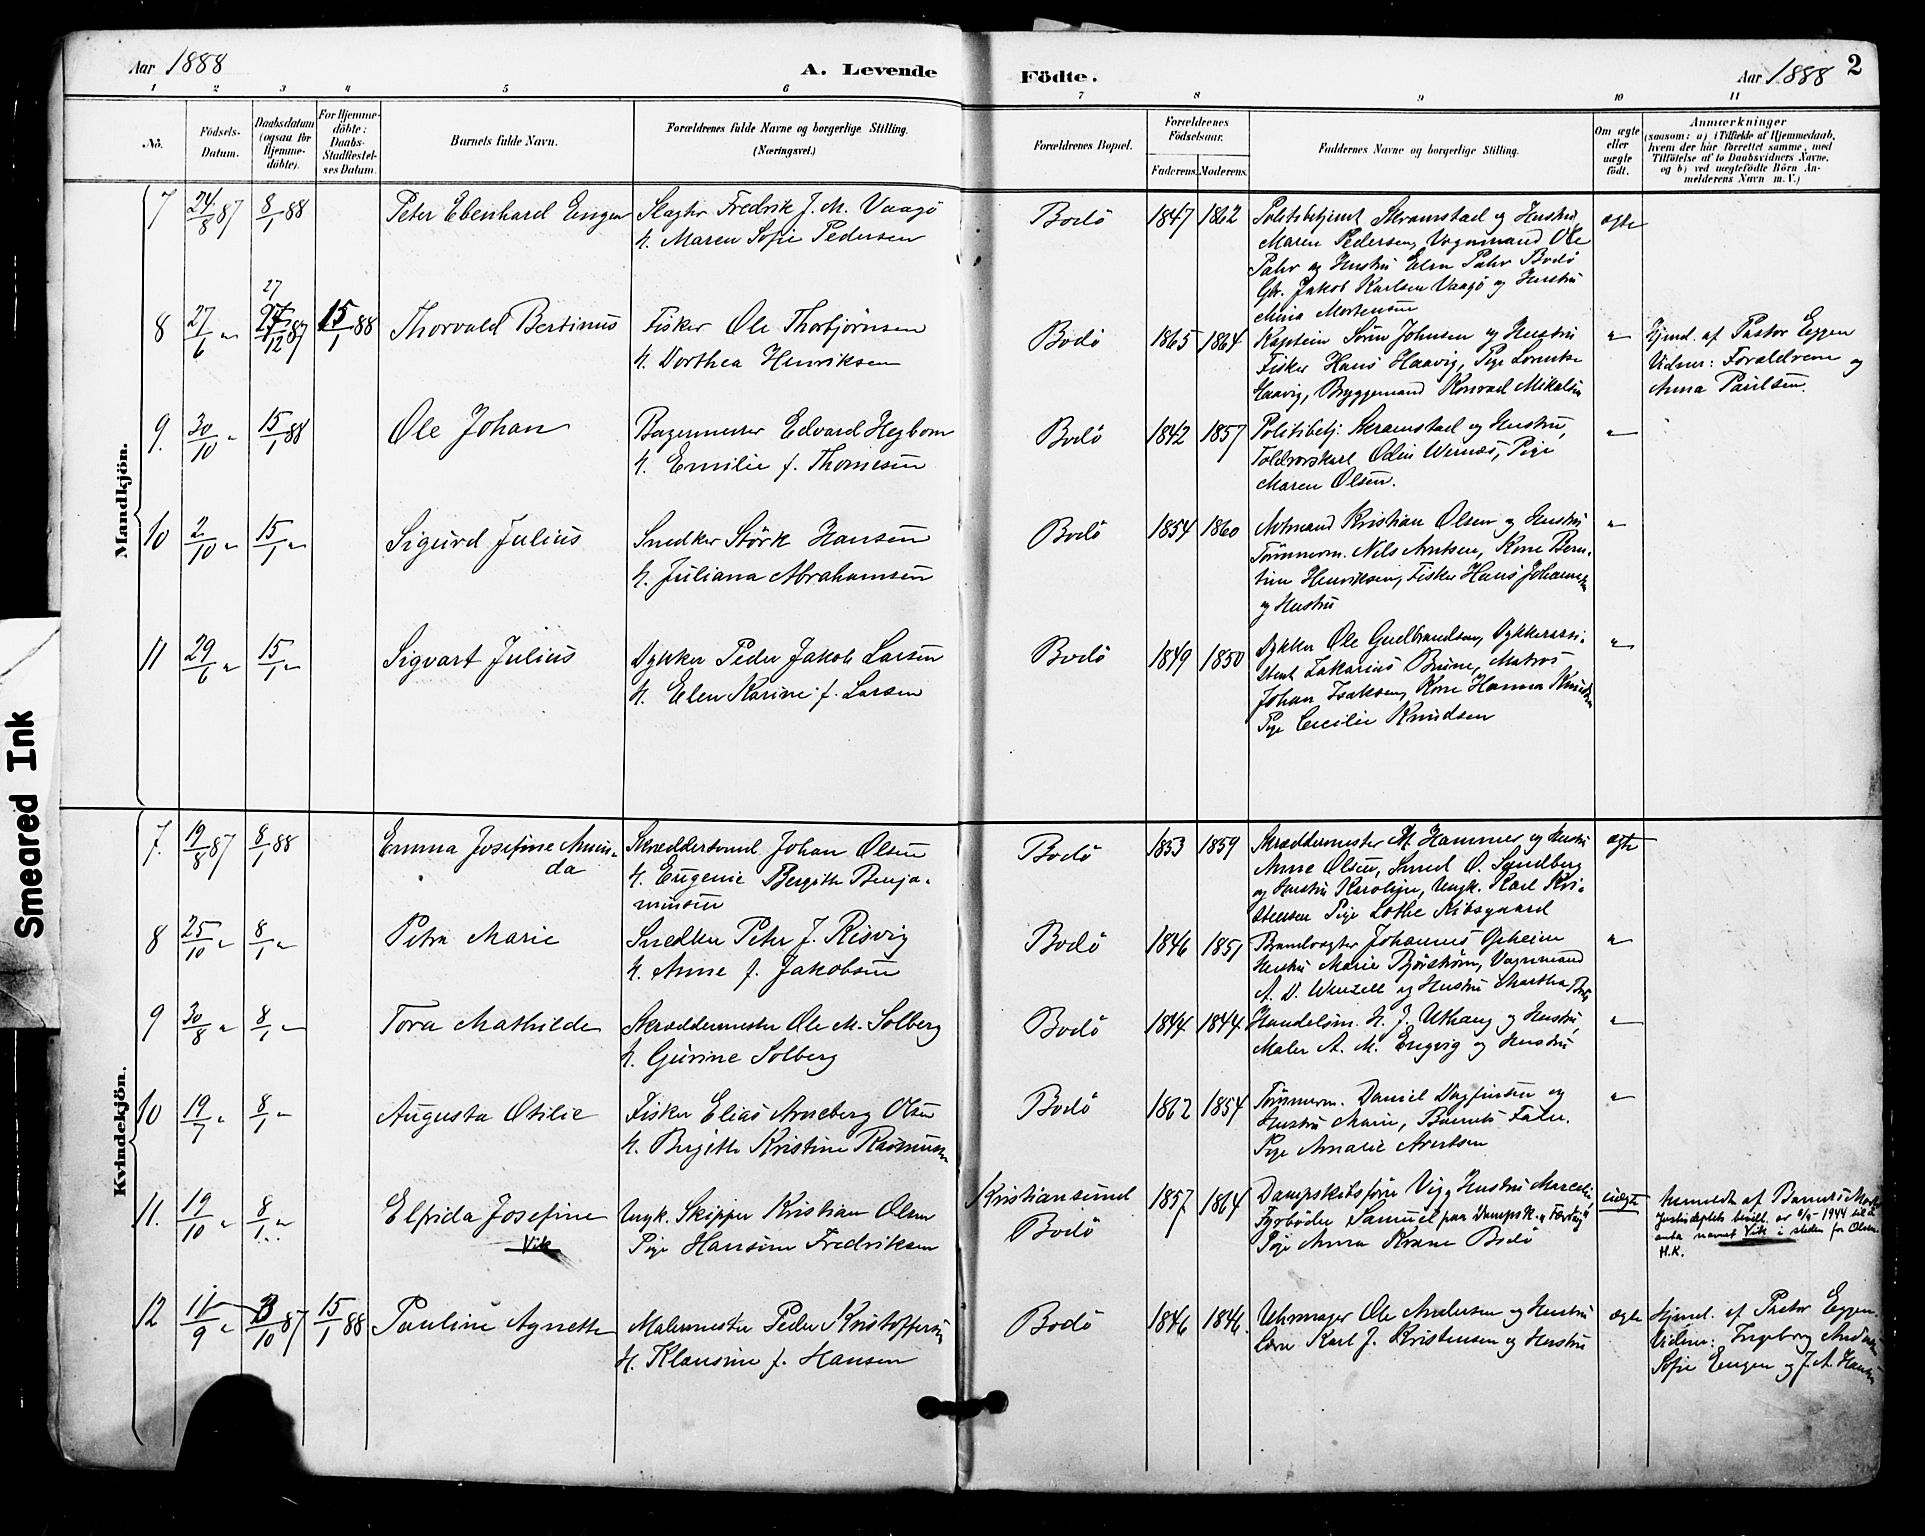 Aar 1888
A. Levende
Födte.
Aar 1888
2
1 2 3 4 5 6 7 8 9 10 11
No.
Födsels-Datum.
Daabsdatum (ogsaa for Hjemme-döbte).
For Hjemme-döbte: Daabs-Stadfæstel-ses Datum.
Barnets fulde Navn.
Forældrenes fulde Navne og borgerlige Stilling.
(Næringsvei.)
Forældrenes Bopæl.
Forældrenes Födselsaar.
Faderens. Moderens.
Faddernes Navne og borgerlige Stilling.
Om ægte eller uægte født.
Anmærkninger
(saasom: a) i Tilfælde af Hjemmedaab,
hvem der har forrettet samme, med
Tilföielse af to Daabsvidners Navne,
og b) ved uægtefödte Börn An-
melderens Navn m. V.)
Mandkjön.
7 24/8 87 8/1 88 Peter Ebenhard Engen Slagter Fredrik J. M. Vaagö Bodö 1847 1862 Politibetjent Skramstad og Hustru ægte
H. Maren Sofie Pedersen Maren Pedersen, Vognmand Ole
Pahr og Hustru Elen Pahr Bodö
Gbr. Jakob Karlsen Vaagö og Hustru
Mina Mortensen
27
8 27/6 " 27/12 87 15/1 88 Thorvald Bertinus Fisker Ole Thorbjörnsen Bodö 1865 1864 Kaptein Sören Johnsen og Hustru " Hjmd. af Pastor Eggen
H. Dorthea Henriksen Fisker Hans Haavig, Pige Lorentse Vidner: Forældrene og
Haavig, Bryggemand Konrad Mikalsen Anna Paulsen.
9. 30/10 " 15/1 88 Ole Johan Bagermester Edvard Hegbom Bodö 1842 1857 Politibetj. Skramstad og Hustru, "
H. Emilie f. Thomesen Toldrorskarl Odin Wernes, Pige
Maren Olsen.
10 2/10 " 15/1 " Sigurd Julius Snedker Störk Hansen Bodö 1854 1860 Kristian Olsen og Hustru "
H. Juliana Abrahamsen Tömmerm. Nils Arntsen, Kone Bern-
tine Henriksen, Fisker Hans Johannesen
og Hustru
11 29/6 " 15/1 " Sigvart Julius Dykker Peder Jakob Larsen Bodö 1849 1850 Dykker Ole Gudbrandsen, Dykkerassi- "
H. Elen Karine f. Larsen stent Zakarias Brune, Matros
Johan Isaksen, Kone Hanna Knudsen
Pige Cecilie Knudsen
Kvindekjön.
7. 19/8 87 8/1 88 Emma Josefine Amin- Skræddersvend Johan Olsen Bodö 1853 1859 Skræddermester M. Hammer og Hustru ægte
da H. Eugenie Bergithe Benja- Anne Olsen, Smed O. Sandberg
minsen og Hustru Karoline, Ungk. Karl Kri-
stensen Pige Lothe Kibsgaard
8 25/10 " 8/1 " Petra Marie Snedker Peter J. Risvig Bodö 1846 1851 Brandvagter Johannes Opheim "
H. Anne f. Jakobsen Hustru Marie Björström, Vognmand
A. D. Wenzell og Hustru Martha
9 30/8 " 8/1 " Tora Mathilde Skræddermester Ole M. Solberg Bodö 1844 1844 Handelsm. H. J. Uthaug og Hustru, "
H. Gurine Solberg Maler A. M. Engvig og Hustru
10 19/7 " 8/1 " Augusta Otilie Fisker Elias Arneberg Olsen Bodö 1862 1854 Tömmerm. Daniel Dagfinsen og "
H. Bergithe Kristine Rasmussen Hustru Marie, Barnets Fader.
Pige Amalie Arentsen
11. 19/10 " 8/1 " Elfrida Josefine Ungk. Skipper Kristian Olsen Kristiansund 1857 1864 Dampskibsförer Vig og Hustru uægte Anmeldt af Barnets Moder
Vik Pige Hansine Fredriksen Bodö Fyrböder Samuel paa Dampsk. Pige Anna Krane Bodö
Justisdeptets bevill. av 1944 til å
anta navnet Vik i steden for Olsen.
H.K.
12 11/9 " 3/10 87 15/1 88 Pauline Agnethe Malermester Peder Kristoffersen Bodö 1846 1846 Uhrmager Ole Andersen og Hustru ægte Hjmd. af Pastor Eggen.
H. Klausine f. Hansen Karl J. Kristensen og Hustru Vidner: Ingeborg Andersen
Sofie Engen og J. A. Hansen
Smeared Ink